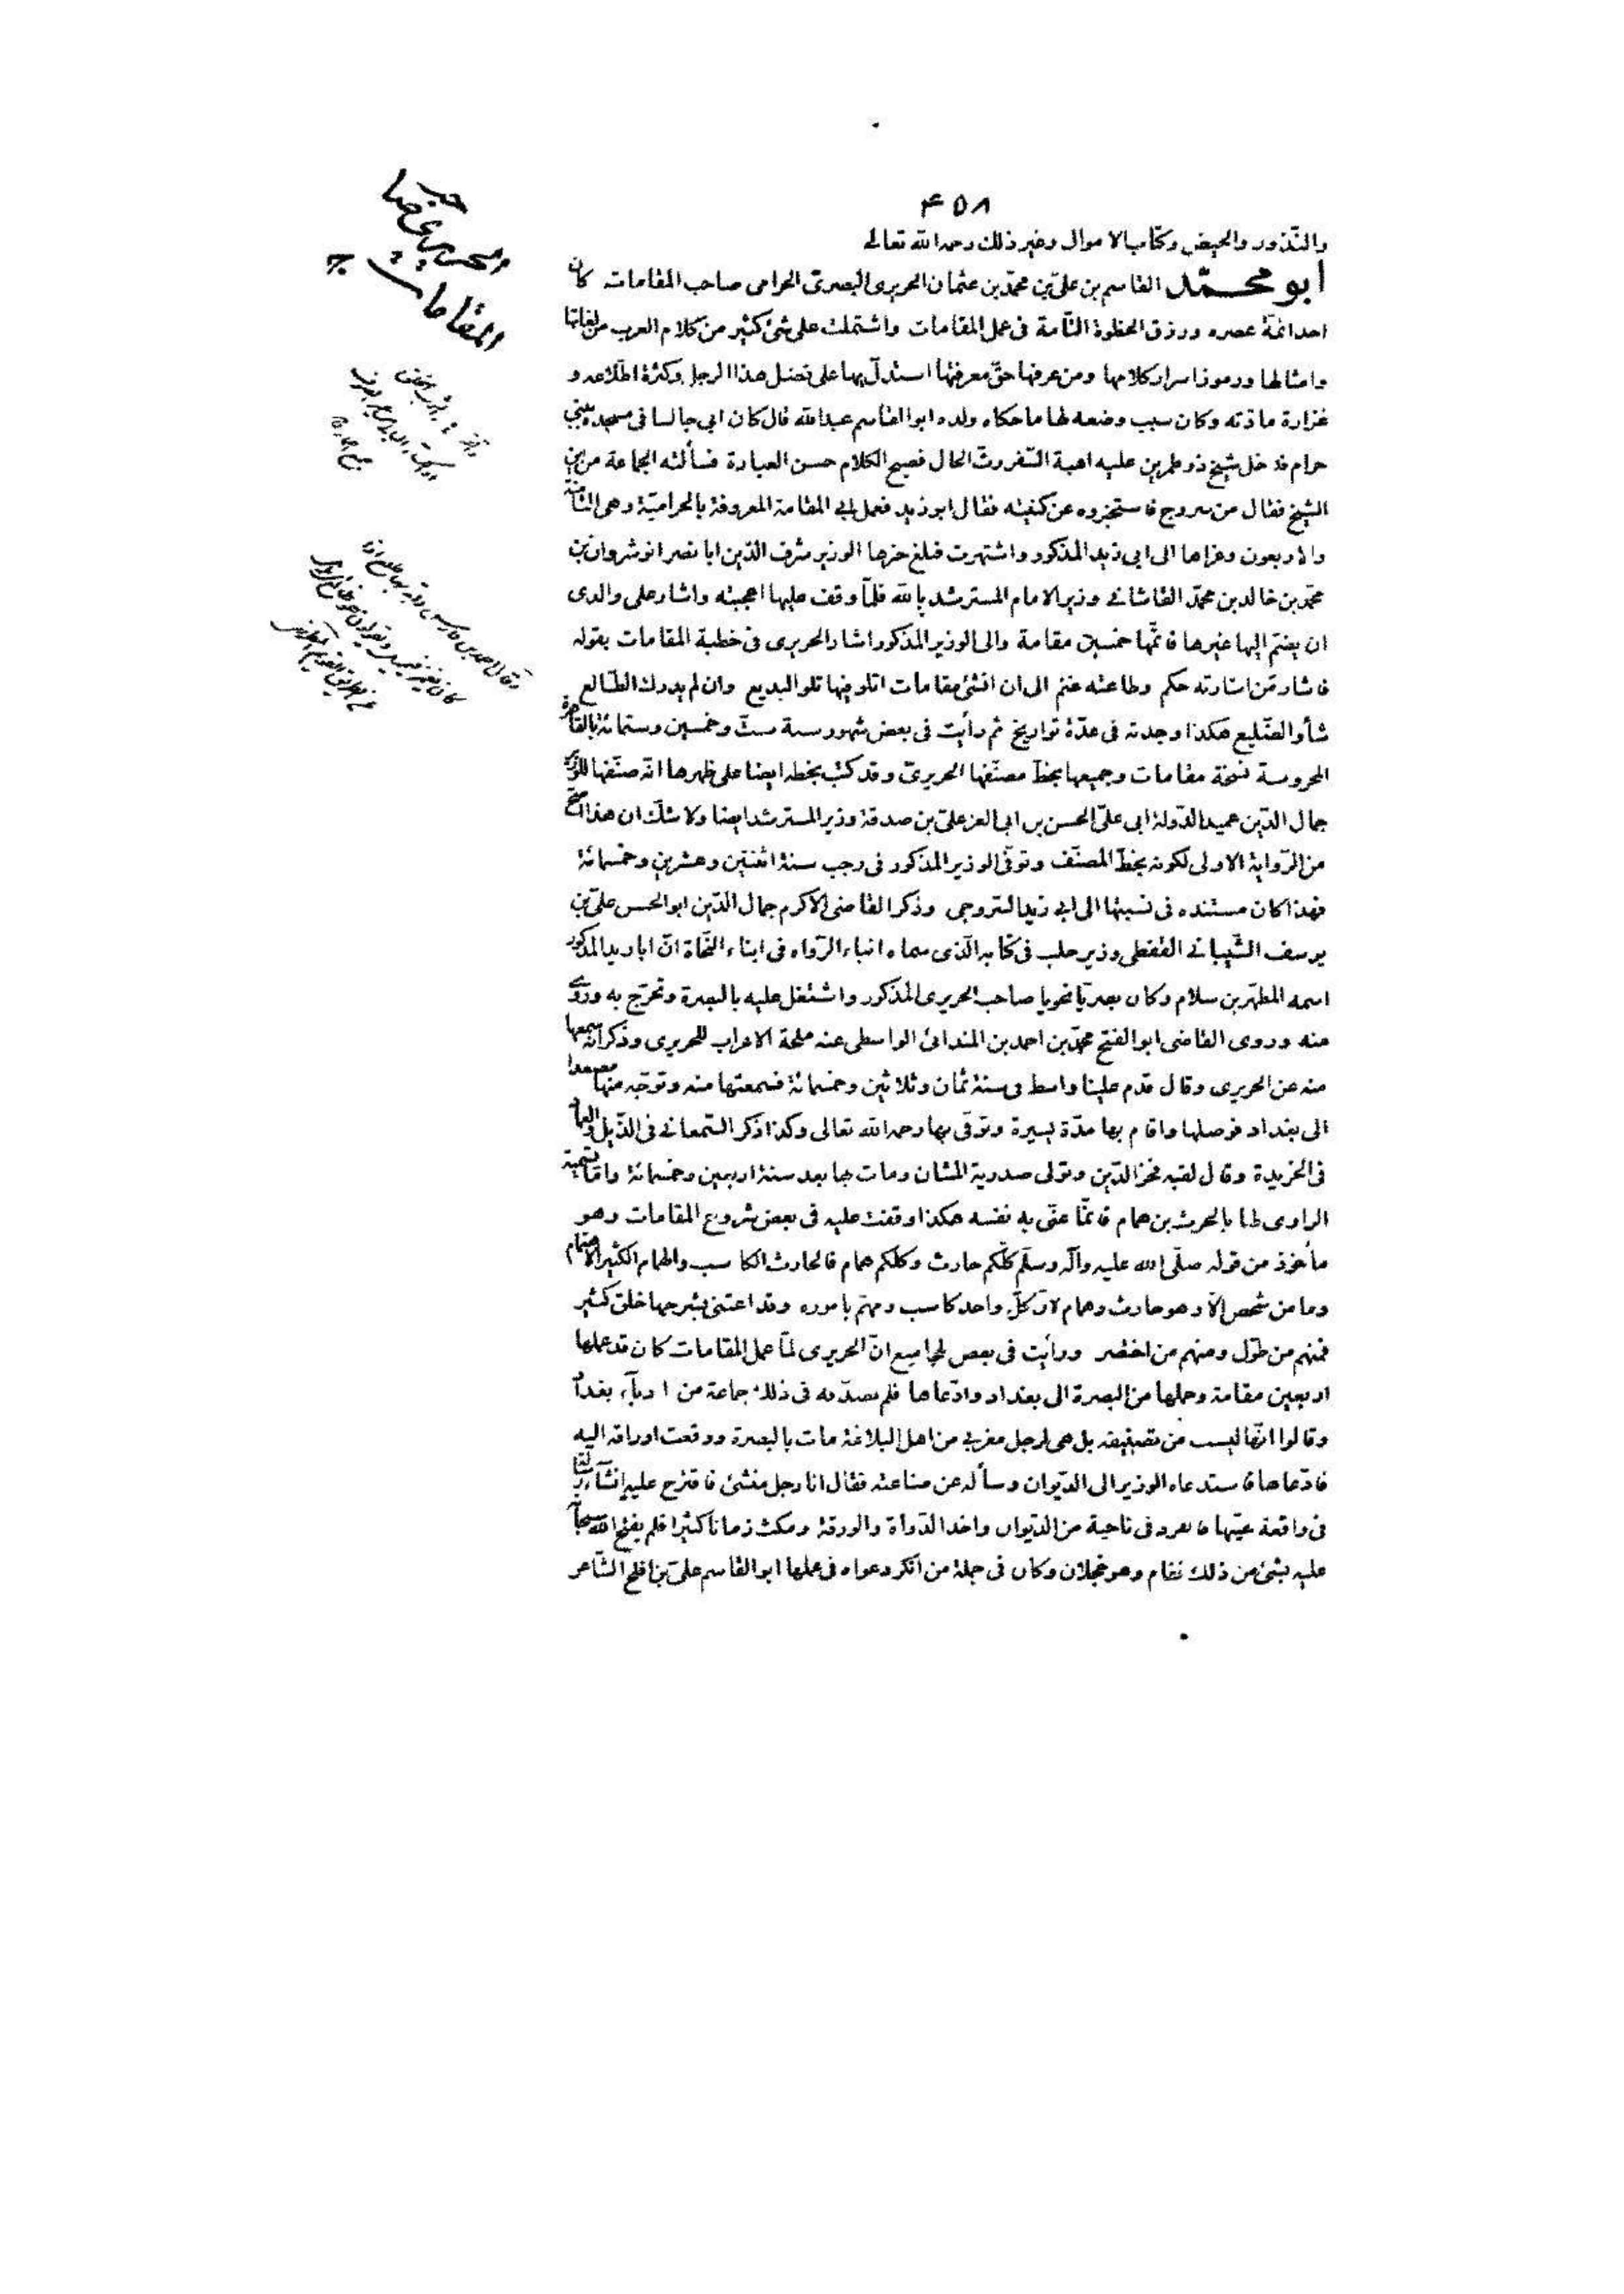 ۴۵۸
والنّذور والحيض وكتاب الاموال وغير ذلك رحمه الله تعالى
أبو محمّد القاسم بن علىّ بن محمّد بن عثمان الحريرى البصرىّ الحرامى صاحب المقامات كان
احد ائمّة عصره ورزق الحظوة التّامة فى عمل المقامات واشتملت على شئ كثير من كلام العرب من لغاتها
وامثالها ورموز اسرار كلامها ومن عرفها حقّ معرفتها استدلّ بها على فضل هذا الرجل وكثرة اطّلاعه و
غزارة مادّته وكان سبب وضعه لها ما حكاه ولده ابو القاسم عبد الله قال كان ابى جالسا فى مسجده ببنى
حرام فدخل شيخ ذو طمرين عليه اهبة السّفر رثّ الحال فصيح الكلام حسن العبارة فسألته الجماعة من اين
الشيخ فقال من سروج فاستخبروه عن كنيته فقال ابو زيد فعمل ابى المقامة المعروفة بالحراميّة وهى الثامنة
والاربعون وعزاها الى ابى زيد المذكور واشتهرت فبلغ خبرها الوزير شرف الدّين ابا نصر انوشروان بن
محمّد بن خالد بن محمّد القاشانى وزير الامام المسترشد بالله فلمّا وقف عليها اعجبته واشار على والدى
ان يضمّ اليها غيرها فاتمّها خمسين مقامة والى الوزير المذكور اشار الحريرى فى خطبة المقامات بقوله
فاشار من اشارته حكم وطاعته غنم الى ان انشئ مقامات اتلو فيها تلو البديع وان لم يدرك الظّالع
شأو الضّليع هكذا وجدته فى عدّة تواريخ ثم رأيت فى بعض شهور سنة ستّ وخمسين وستمائة بالقاهرة
المحروسة نسخة مقامات وجميعها بخطّ مصنّفها الحريرىّ وقد كتب بخطه ايضا على ظهرها انّه صنّفها للوزير
جمال الدّين عميد الدّولة ابى علىّ الحسن بن ابى العز علىّ بن صدقة وزير المسترشد ايضا ولا شكّ ان هذا اصحّ
من الرّواية الاولى لكونه بخطّ المصنّف وتوفّى الوزير المذكور فى رجب سنة اثنتين وعشرين وخمسمائة
فهذا كان مستنده فى نسبتها الى ابى زيد السّروجى وذكر القاضى الاكرم جمال الدّين ابو الحسن علىّ بن
يوسف الشّيبانى القفطى وزير حلب فى كتابه الّذى سماه انباء الرّواه فى ابناء النّحاة انّ ابا زيد المذكور
اسمه المطهّر بن سلام وكان بصريّا نحويا صاحب الحريرى المذكور واشتغل عليه بالبصرة وتخرّج به وروى
منه وروى القاضى ابو الفتح محمّد بن احمد بن المندائى الواسطى عنه ملحة الاعراب للحريرى وذكر انّه سمعها
منه عن الحريرى وقال قدم علينا واسط فى سنة ثمان وثلاثين وخمسمائة فسمعتها منه وتوجّه منها مصعدا
الى بغداد فوصلها واقام بها مدّة يسيرة وتوفّى بها رحمه الله تعالى وكذا ذكر السّمعانى فى الذّيل والعماد
فى الخريدة وقال لقبه فخر الدّين وتولى صدرية المشان ومات بها بعد سنة اربعين وخمسمائة وامّا تسمية
الراوى لها بالحرث بن همام فانّما عنّى به نفسه هكذا وقفت عليه فى بعض شروح المقامات وهو
مأخوذ من قوله صلّى الله عليه وآله وسلّم كلّكم حارث وكلكم همام فالحارث الكاسب والهمام الكثير الاهتمام
وما من شخص الّا وهو حارث وهمام لانّ كلّ واحد كاسب ومهتم باموره وقد اعتنى بشرحها خلق كثير
فمنهم من طوّل ومنهم من اختصر ورأيت فى بعض المجاميع انّ الحريرى لمّا عمل المقامات كان قد عملها
اربعين مقامة وحملها من البصرة الى بغداد وادّعاها فلم يصدّقه فى ذلك جماعة من ادباء بغداد
وقالوا انّها ليست من تصنيفه بل هى لرجل مغربى من اهل البلاغة مات بالبصرة ووقعت اوراقه اليه
فادّعاها فاستدعاه الوزير الى الدّيوان وسأله عن صناعته فقال انا رجل منشئ فاقترح عليه انشاء رسالة
فى واقعة عيّنها فانفرد فى ناحية من الدّيوان واخذ الدّواة والورقة ومكث زمانا كثيرا فلم يفتح الله سبحانه
عليه بشئ من ذلك فقام وهو خجلان وكان فى جملة من انكر دعواه فى عملها ابو القاسم علىّ بن افلح الشّاعر
الحريرى صاحب
المقامات